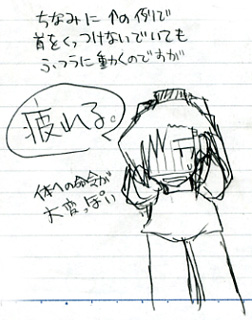 ちなみに ↑の例で
首をくっつけないでいても
ふつうに動くのですが
疲れる。
体への命令が
大変っぽい